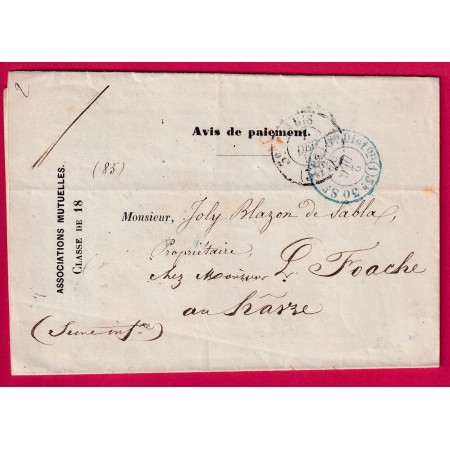 2
Avis de paiement.
ASSOCIATIONS MUTUELLES.
CLASSE DE 18
(85)
Monsieur, Joly Blazon de Sabla,
Propriétaire,
chez Monsieur L. Foache
au hâvre
(Seine infre)